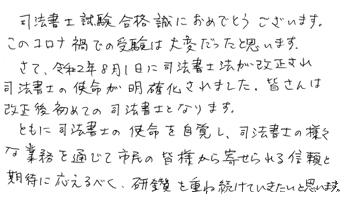 司法書士試験合格誠におめでとうございます。
このコロナ禍での受験は大変だったと思います。
さて、令和2年8月1日に司法書士法が改正され
司法書士の使命が明確化されました。皆さんは
改正後初めての司法書士となります。
ともに司法書士の使命を自覚し、司法書士の様々
な業務を通じて市民の皆様から寄せられる信頼と
期待に応えるべく、研鑽を重ね続けていきたいと思います。